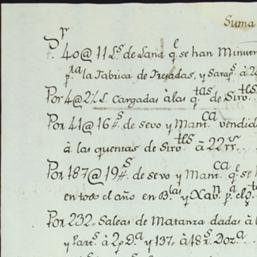 Suma
P.r 40@ 11 L.s de Lana q.e se han Minuer
p.a la Fabrica de Frezadas, y Sarap.s à 2
Por 4@ 2½ L. Cargadas à las q.tas de Siro.tes
Por 41@ 16 L.s de sevo y Mant.ca vendid
à las quentas de Siro.tes à 22 r.s
Por 187@ 19 L.s de sevo y Mant.ca q.e se h
en todo el año en B.las y Xab.n p.a el g
Por 232 Saleas de Matanza dadas à l
y Part.s à 2 p. D.a y 137 à 18 r.s Doz.a